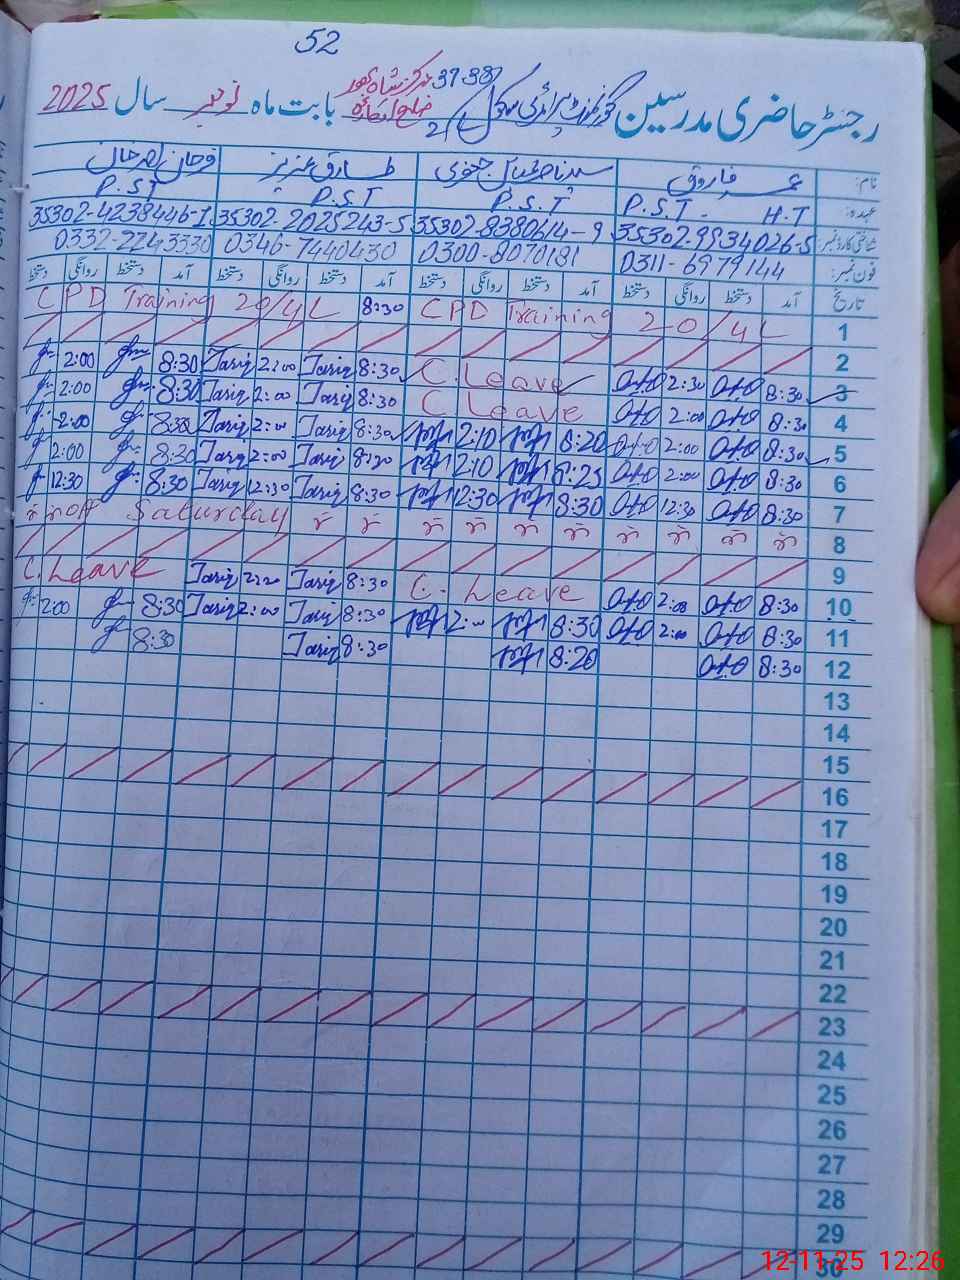 52
رجسٹر حاضری مدرسین گورنمنٹ پرائمری سکول 37-38/2L مرکز شاہبھور ضلع اوکاڑہ بابت ماہ نومبر سال 2025
نام: عمر فاروق سید ناصر عباس طارق عزیز فرحان
عہدہ: P.S.T - H.T P.S.T P.S.T P.S.T
شناختی کارڈ نمبر: 35302-9934026-5 35302-8380614-9 35302-2025243-5 35302-4238446-1
فون نمبر: 0311-6979144 0300-8070181 0346-7440430 0332-2243330
تاریخ آمد دستخط روانگی دستخط آمد دستخط روانگی دستخط آمد دستخط روانگی دستخط آمد دستخط روانگی دستخط
1 CPD Training 20/4L 8:30 CPD Training 20/4L
2
3 8:30 2:30 C.Leave 8:30 Tariq 2:00 Tariq 8:30 2:00
4 8:30 2:00 C Leave 8:30 Tariq 2:00 Tariq 8:30 2:00
5 8:30 2:00 8:20 2:10 8:30 Tariq 2:00 Tariq 8:30 2:00
6 8:30 2:00 8:25 2:10 8:30 Tariq 2:00 Tariq 8:30 2:00
7 8:30 12:30 8:30 12:30 8:30 Tariq 12:30 Tariq 8:30 12:30
8 off Saturday
9
10 8:30 2:00 C. Leave 8:30 Tariq 2:20 Tariq C. Leave
11 8:30 2:00 8:30 2:00 8:30 Tariq 2:00 Tariq 8:30 2:00
12 8:30 8:20 8:30 Tariq 8:30
13
14
15
16
17
18
19
20
21
22
23
24
25
26
27
28
29
30
12-11-25 12:26